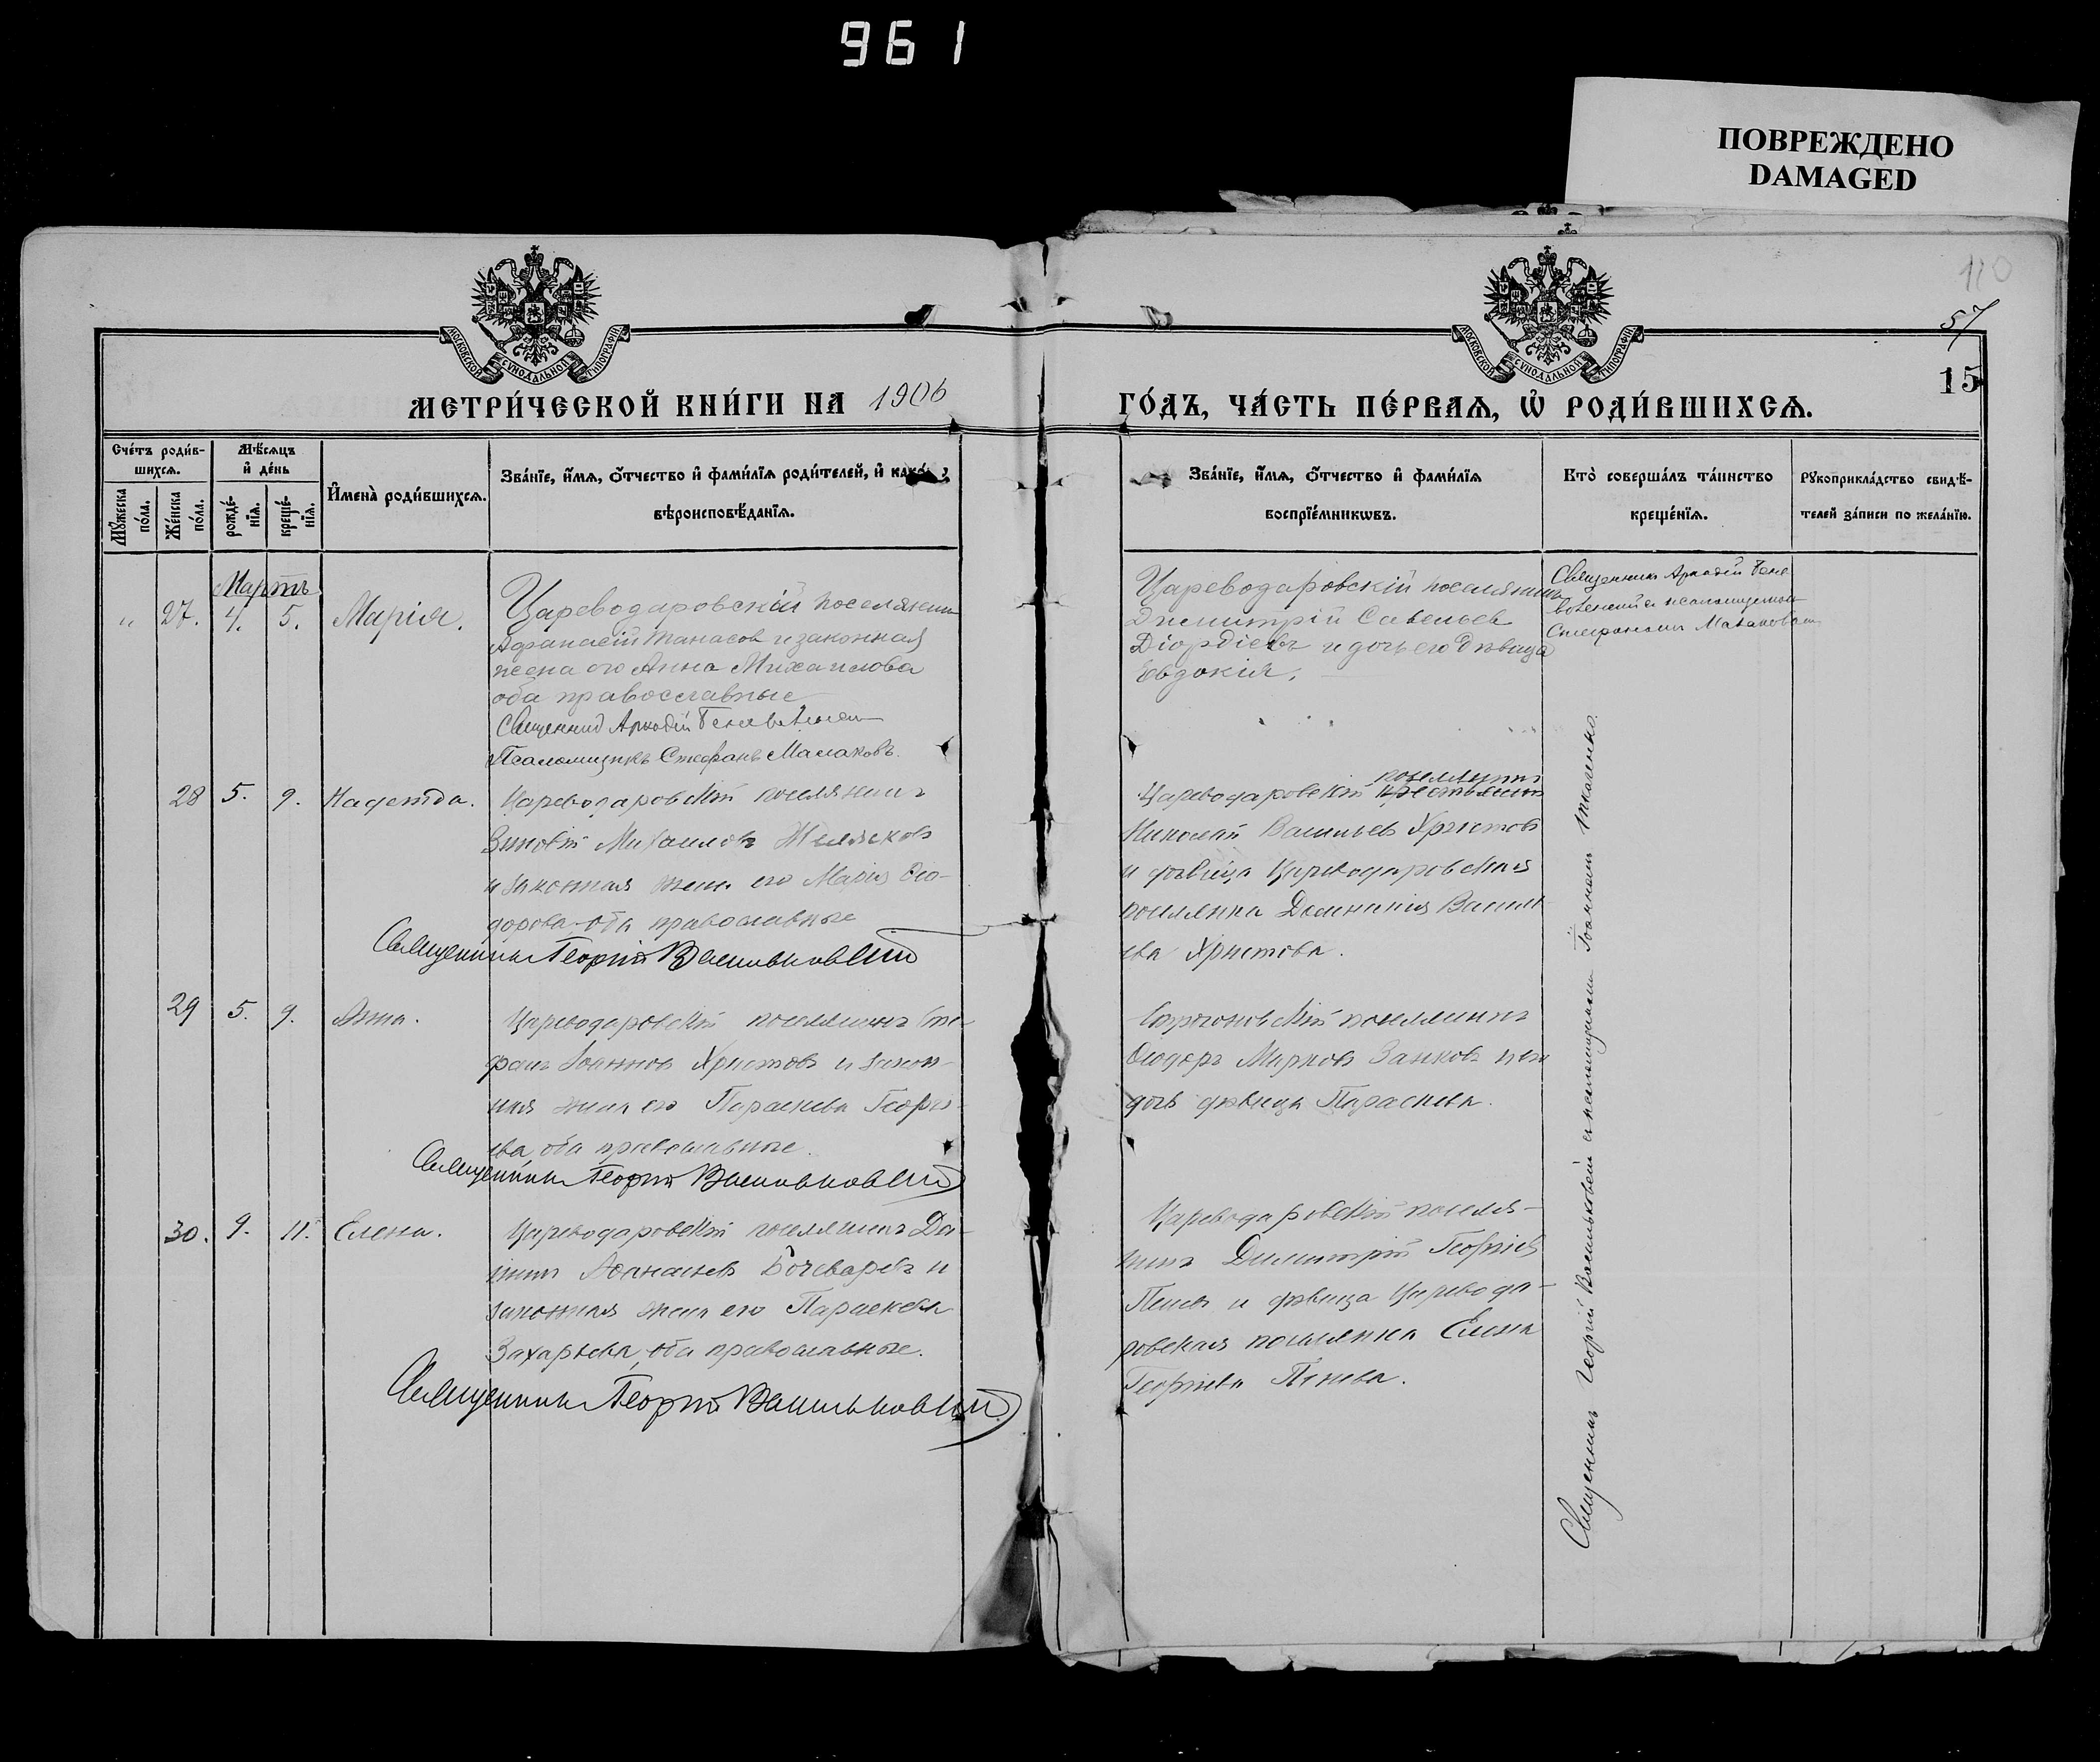 961
ПОВРЕЖДЕНО
DAMAGED
110
57
15
МОСКОВСКОЙ СѴНОДАЛЬНОЙ ТИПОГРАФІИ
МОСКОВСКОЙ СѴНОДАЛЬНОЙ ТИПОГРАФІИ
МЕТРИ́ЧЕСКОЙ КНИ́ГИ НА 1906
ГО́ДЪ, ЧА́СТЬ ПЕ́РВАЯ, Ѡ҆ РОДИ́ВШИХСѦ.
Сче́тъ роди́в-
шихсѧ.
Мѹжеска по́ла.
Же́нска по́ла.
Мѣ́сѧцъ
и҆ де́нь
рожде́-
нїѧ.
креще́-
нїѧ.
И҆мена̀ роди́вшихсѧ.
Зва́нїе, и҆́мѧ, ѻ҆́тчество и҆ фами́лїѧ роди́телей, и҆
вѣроисповѣ́данїѧ.
Зва́нїе, и҆́мѧ, ѻ҆́тчество и҆ фами́лїѧ
воспрїе́мникѡвъ.
Кто̀ соверша́лъ та́инство
креще́нїѧ.
Рѹкоприкла́дство свидѣ́-
телей за́писи по жела́нїю.
Мартъ
" 27. 4. 5. Марія.
Цареводаровскій поселянин
Афанасій Танасов и законная
жена его Анна Михаилова
оба православные
Священник Аркадій
Псаломщикъ Стефанъ Малаковъ.
Цареводаровскій поселянинъ
Дмитрій Савельев
Діордіевъ и дочь его девица
Евдокія.
Священник Аркадій
и псаломщиком
Стефаном Малаковым
28 5. 9. Надежда.
Цареводаровскій поселянинъ
Зиновій Михаиловъ Желясковъ
и законная жена его Марія Ѳео-
дорова, оба православные
Священникъ Георгій Васильковскій
поселянинъ
Цареводаровскій крестьянинъ
Николай Васильевъ Христовъ
и дѣвица Цареводаровская
поселянка Домникія Василь-
ева Христова.
29 5. 9. Анна.
Цареводаровскій поселянинъ Сте-
фанъ Іоанновъ Христовъ и закон-
ная жена его Параскева Георгі-
ева, оба православные.
Священникъ Георгій Васильковскій
поселянинъ
Ѳеодоръ Марковъ Занковъ и его
дочь дѣвица Параскева.
30. 9. 11. Елена.
Цареводаровскій поселянинъ Да-
ніилъ Аѳанасьевъ Бочеваровъ и
законная жена его Параскева
Захарьева, оба православные.
Священникъ Георгій Васильковскій
Цареводаровскій поселя-
нинъ Димитрій Георгіевъ
Пеневъ и дѣвица Царевода-
ровская поселянка Елена
Георгіева Пенева.
Священникъ Георгій Васильковскій и псаломщикомъ Іоанномъ